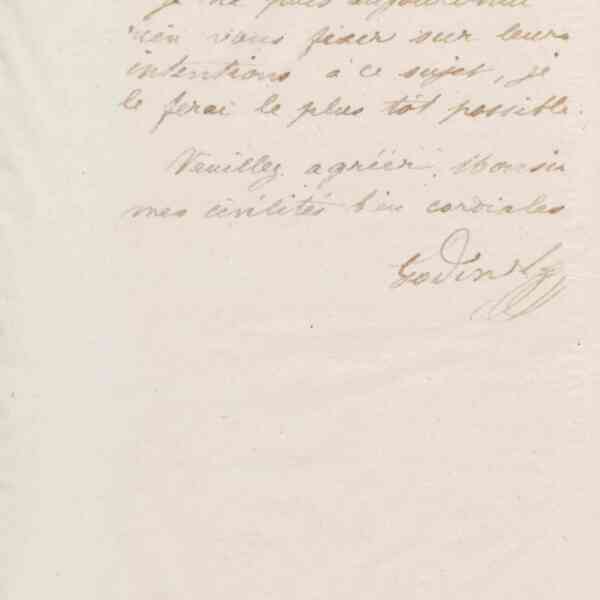 je ne puis aujourd'hui
rien vous fixer sur leurs
intentions à ce sujet, je
le ferai le plus tôt possible.
Veuillez agréer, Monsieur
mes civilités bien cordiales
Godin